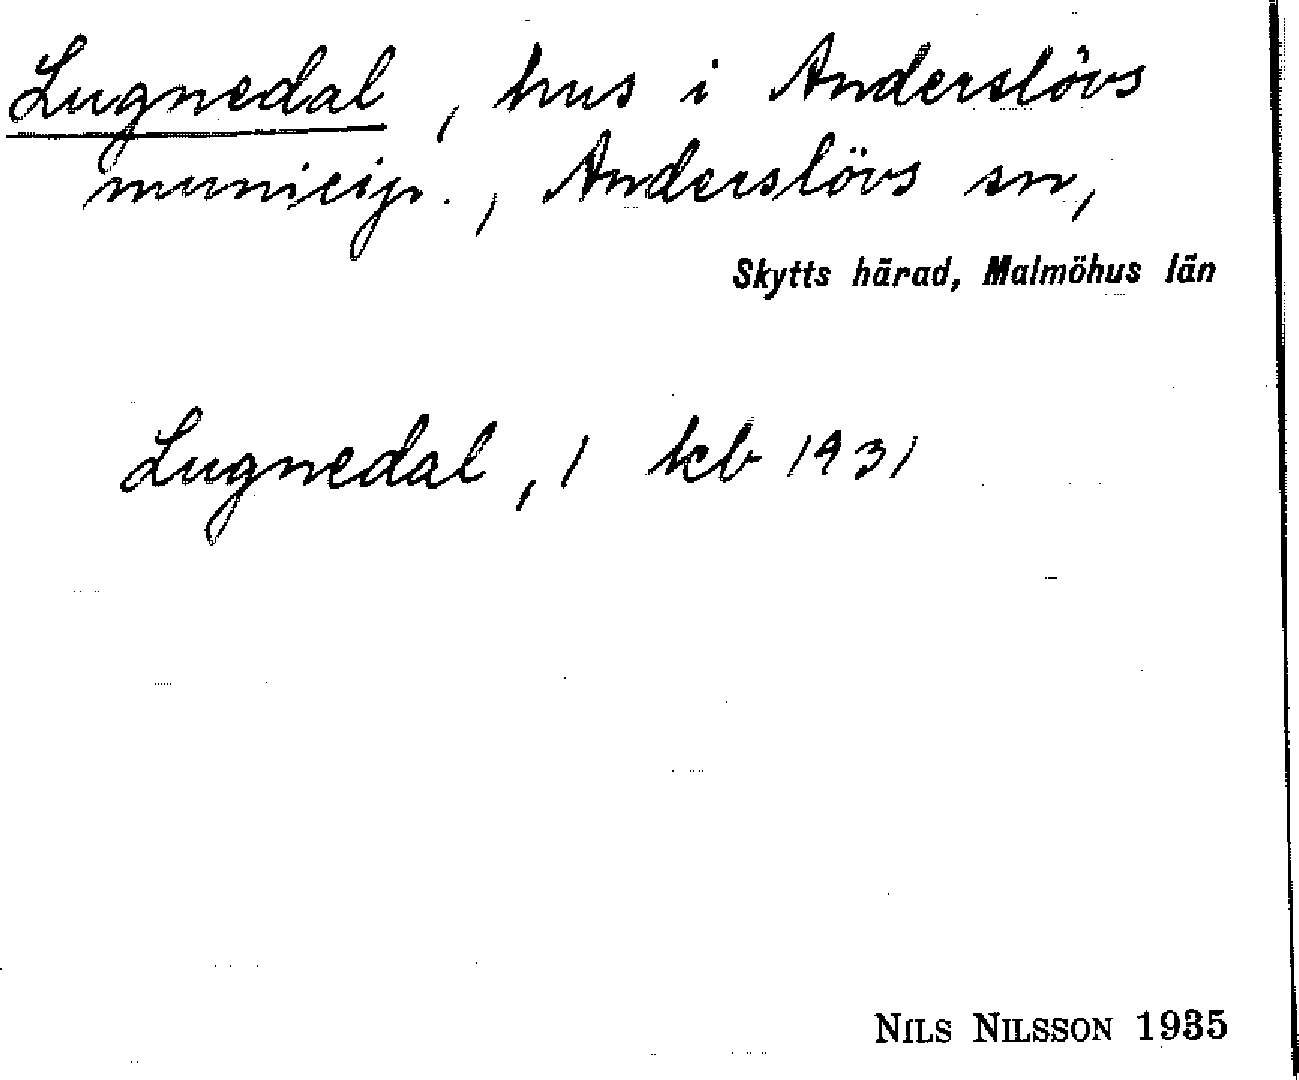 Lugnedal, hus i Anderslövs
municip., Anderslövs sn,
Skytts härad, Malmöhus län
Lugnedal, 1 kb 1931
NILS NILSSON 1935